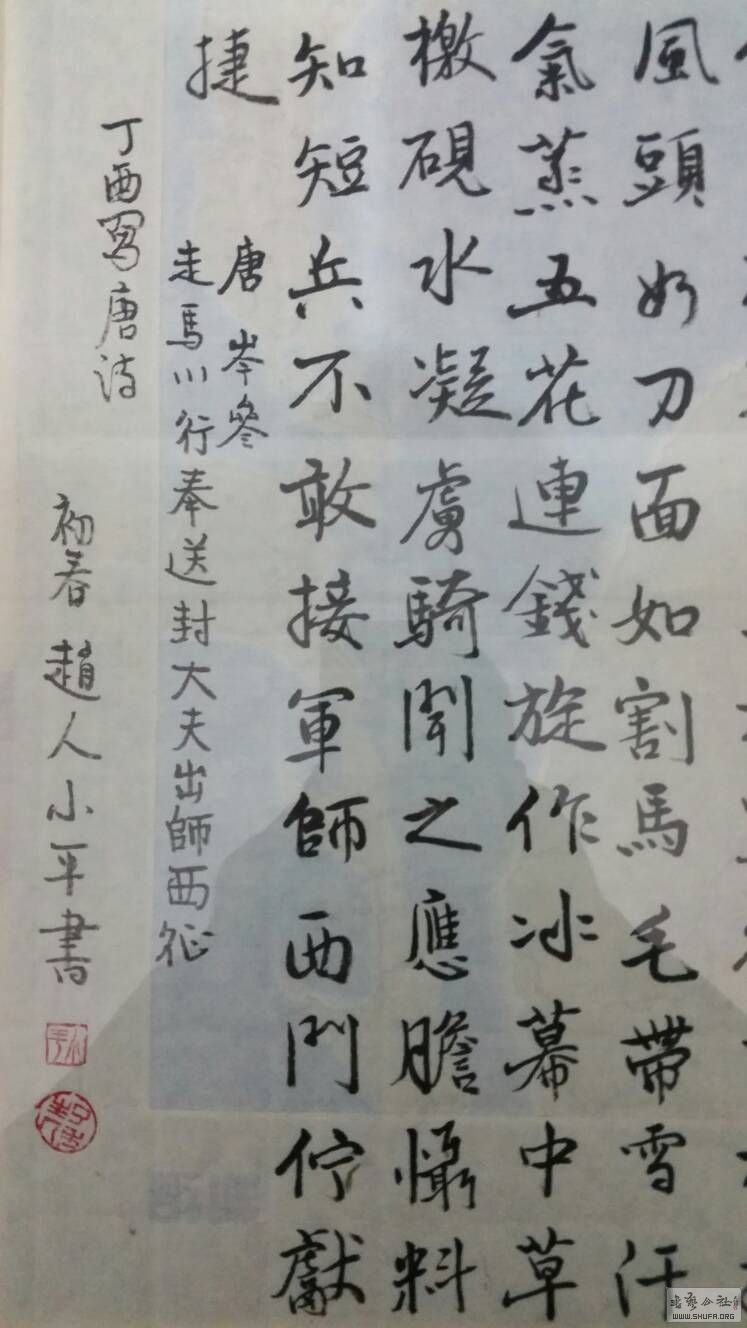 風頭如刀面如割馬毛帶雪汗
氣蒸五花連錢旋作冰幕中草
檄硯水凝虜騎聞之應膽懾料
知短兵不敢接軍師西門佇獻
捷
唐岑參
走馬川行奉送封大夫出師西征
丁酉寫唐詩
初春趙人小平書
WWW.SHUFA.ORG